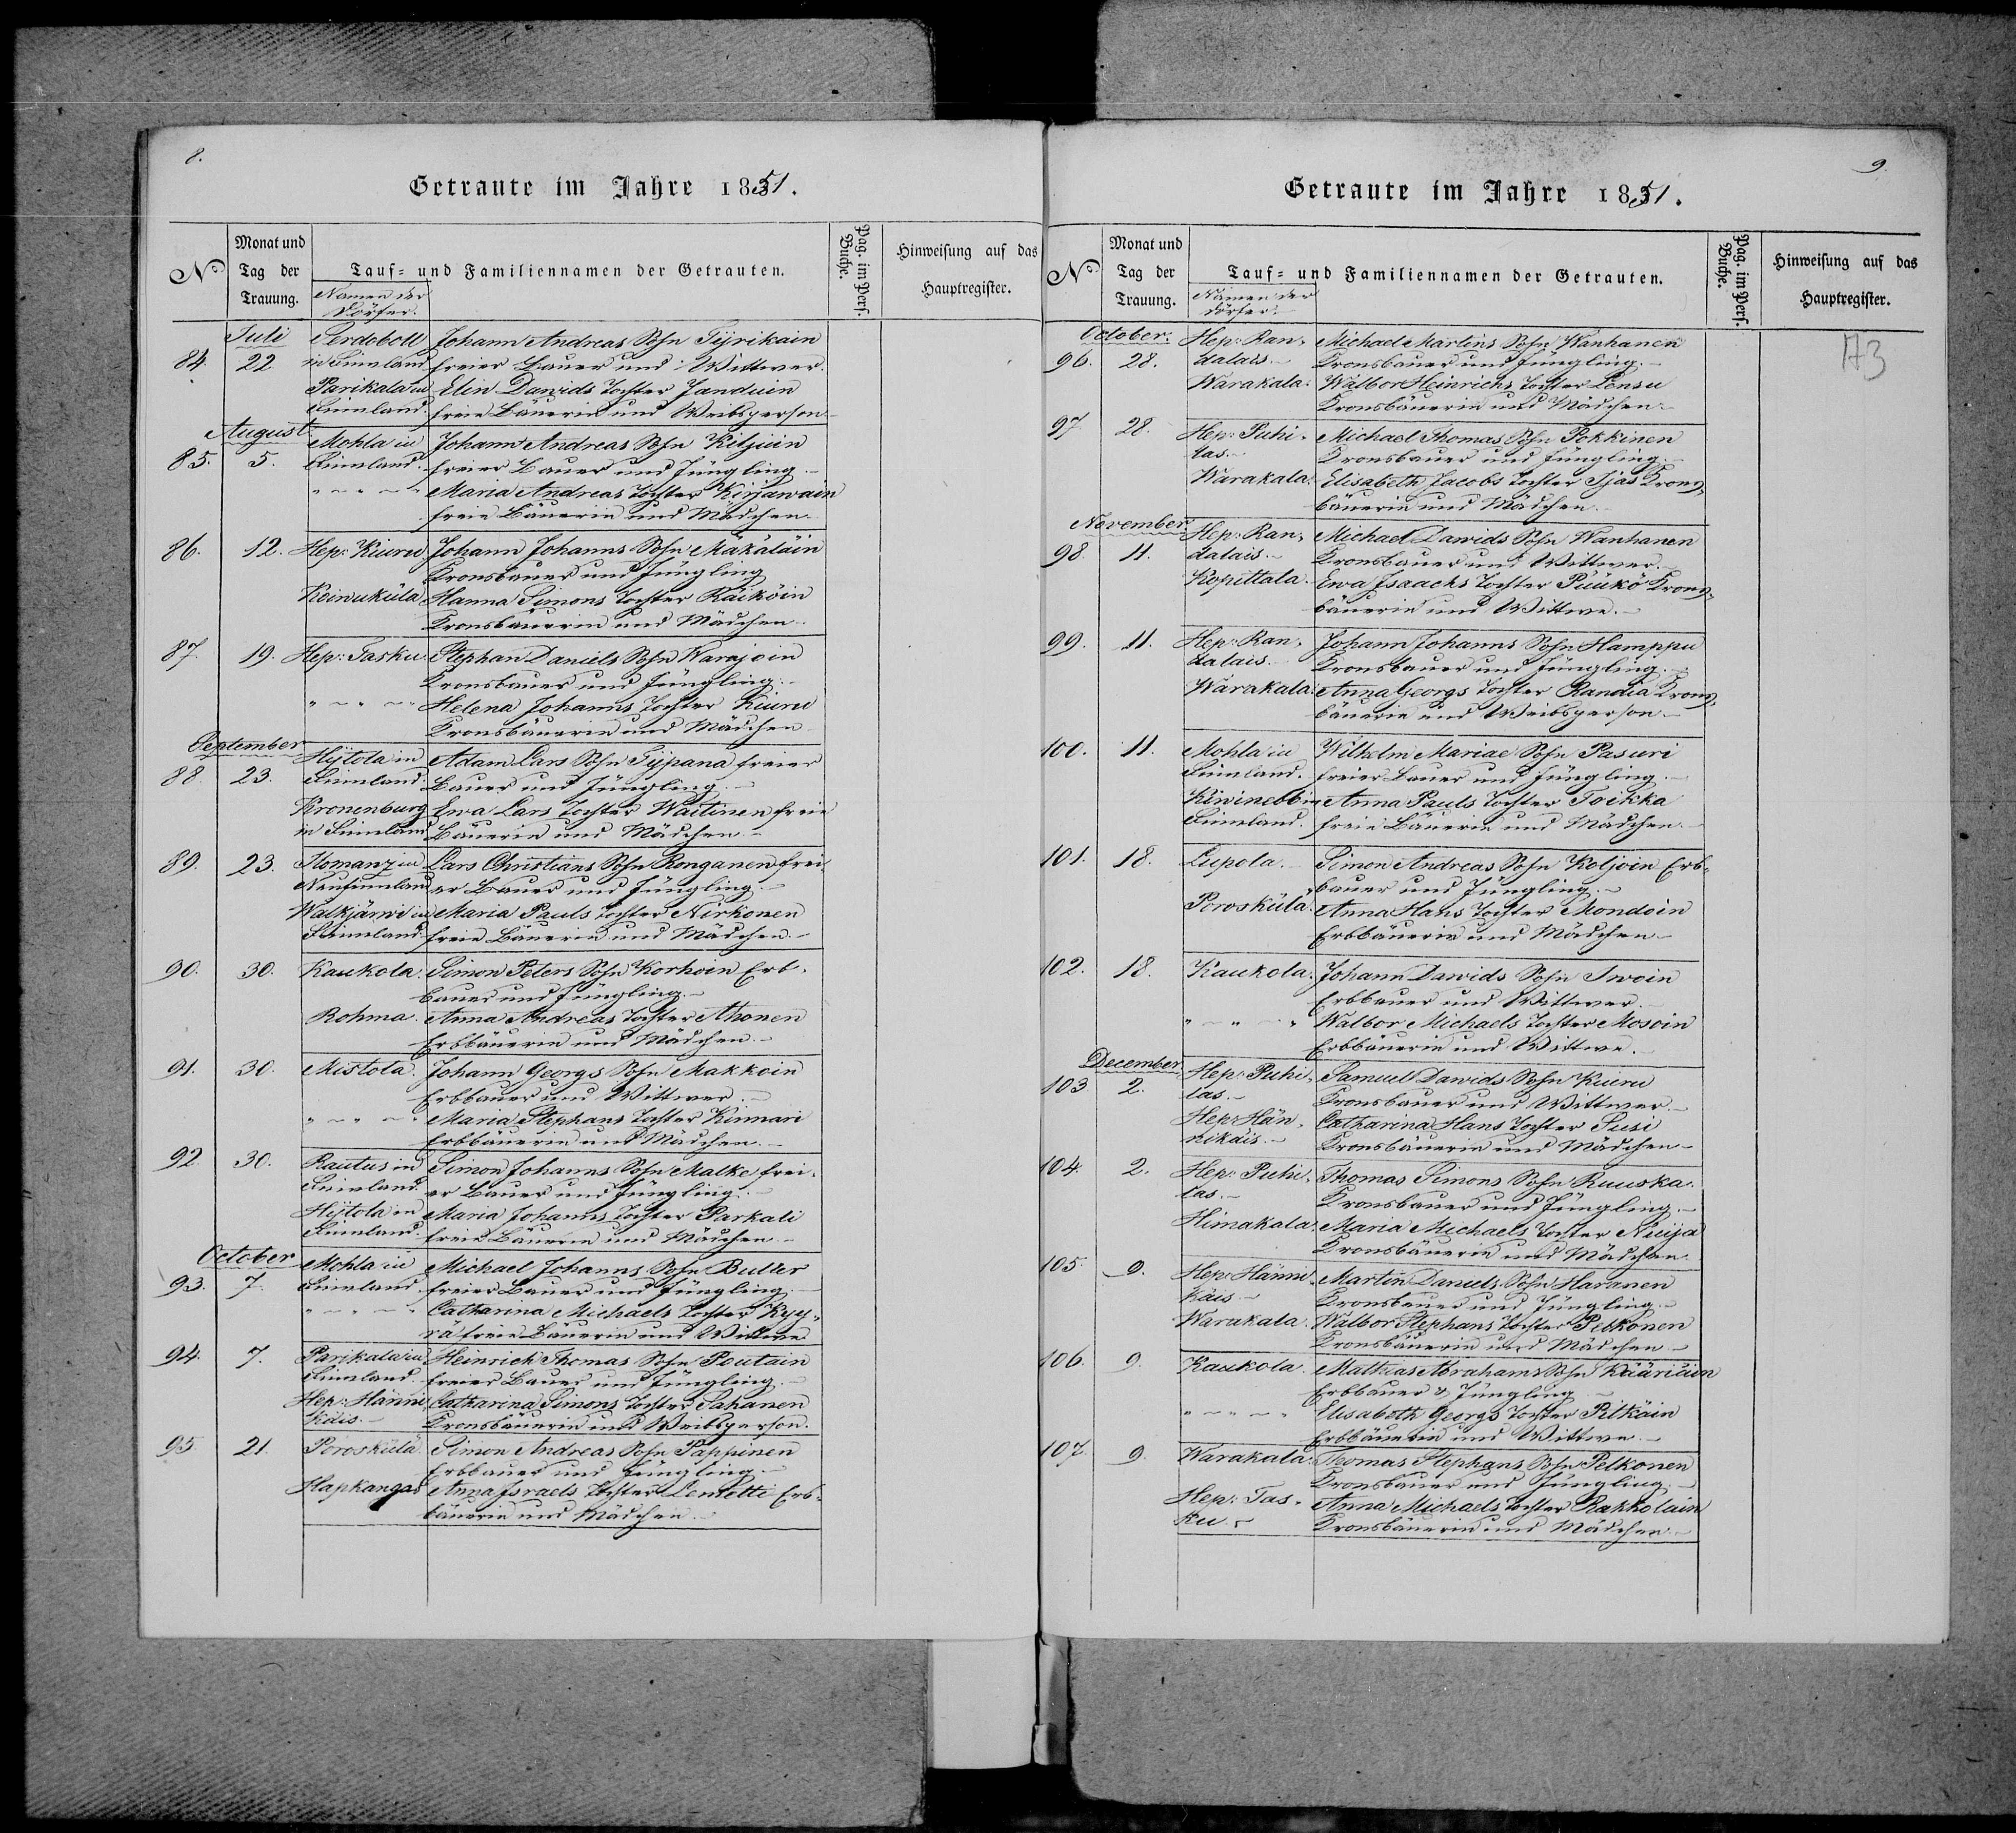 8.
Getraute im Jahre 1851.
No
Monat und
Tag der
Trauung.
Tauf- und Familiennamen der Getrauten.
Namen der
Dörfer.
Pag. im Pers.
Buche.
Hinweisung auf das
Hauptregister.
Juli
84. 22 Serdoboll Johann Andreas Sohn Tyrikain
in Finnland freier Bauer und Wittwer.
Parikala in Elin Dawids Tochter Janduin
Finnland. freie Bäuerin und Weibsperson.
August
85. 5. Mohla in Johann Andreas Sohn Kiljuin
Finnland. freier Bauer und Jüngling.
" ~ " ~ " Maria Andreas Tochter Kirjawain
freie Bäuerin und Mädchen.
86. 12. Hep: Kiuru Johann Johanns Sohn Mäkäläin
Kronsbauer und Jüngling
Koiwuküla Hanna Simons Tochter Räiköin
Kronsbäuerin und Mädchen.
87. 19. Hep: Tasku. Stephan Daniels Sohn Warajoin
Kronsbauer und Jüngling.
" ~ " ~ " Helena Johanns Tochter Kiuru
Kronsbäuerin und Mädchen
September
88. 23. Hijtola in Adam Lars Sohn Sypana freier
Finnland. Bauer und Jüngling.
Kronenburg Ewa Lars Tochter Waitinen freie
in Finnland Bäuerin und Mädchen.
89. 23. Ilomanz in Lars Christians Sohn Ronganen frei-
Neufinnland er Bauer und Jüngling.
Walkjärwi in Maria Pauls Tochter Nirkonen
Finnland. freie Bäuerin und Mädchen.
90. 30. Kaukola. Simon Peters Sohn Korhoin Erb-
bauer und Jüngling.
Rohma. Anna Andreas Tochter Ahonen
Erbbäuerin und Mädchen.
91. 30. Mistola. Johann Georgs Sohn Makkoin
Erbbauer und Wittwer.
" ~ " ~ " Maria Stephans Tochter Kinnari
Erbbäuerin und Mädchen.
92. 30. Rautus in Simon Johanns Sohn Malke frei-
Finnland. er Bauer und Jüngling.
Hijtola in Maria Johanns Tochter Parkali
Finnland. freie Bäuerin und Mädchen.
October
93. 7. Mohla in Michael Johanns Sohn Butter
Finnland. freier Bauer und Jüngling.
" ~ " ~ " Catharina Michaels Tochter Kyy-
rä freie Bäuerin und Wittwe
94. 7. Parikala in Heinrich Thomas Sohn Poutain
Finnland. freier Bauer und Jüngling.
Hep: Hänni- Catharina Simons Tochter Sahanen
käis. Kronsbäuerin und Weibsperson.
95 21. Porosküla Simon Andreas Sohn Pappinen
Erbbauer und Jüngling.
Hapkangas Anna Israels Tochter Lemetti Erb-
bäuerin und Mädchen.
9.
Getraute im Jahre 1851.
No
Monat und
Tag der
Trauung.
Tauf- und Familiennamen der Getrauten.
Namen der
Dörfer.
Pag. im Pers.
Buche.
Hinweisung auf das
Hauptregister.
173
October.
96. 28. Hep: Ran- Michael Martins Sohn Wanhanen
dalais. Kronsbauer und Jüngling.
Warakala. Walbor Heinrichs Tochter Pensu
Kronsbäuerin und Mädchen.
97. 28. Hep: Puhi- Michael Thomas Sohn Pekkinen
las. Kronsbauer und Jüngling.
Warakala. Elisabeth Jacobs Tochter Ijäs Krons-
bäuerin und Mädchen.
November.
98. 11. Hep: Ran- Michael Dawids Sohn Wanhanen
dalais. Kronsbauer und Wittwer.
Kopittala. Ewa Isaachs Tochter Püükö Krons-
bäuerin und Wittwe.
99. 11. Hep: Ran- Johann Johanns Sohn Hamppu
dalais. Kronsbauer und Jüngling.
Warakala. Anna Georgs Tochter Randia Krons-
bäuerin und Weibsperson.
100. 11. Mohla in Wilhelm Mariae Sohn Pasuri
Finnland. freier Bauer und Jüngling.
Kiwinebb in Anna Pauls Tochter Toikka
Finnland. freie Bäuerin und Mädchen.
101. 18. Lupola. Simon Andreas Sohn Koljoin Erb-
bauer und Jüngling.
Porosküla. Anna Hans Tochter Mondoin
Erbbäuerin und Mädchen.
102. 18. Kaukola. Johann Dawids Sohn Iwoin
Erbbauer und Wittwer.
" ~ " ~ " Walbor Michaels Tochter Mosoin
Erbbäuerin und Wittwe.
December.
103 2. Hep: Puhi- Samuel Dawids Sohn Kiuru
las. Kronsbauer und Wittwer.
Hep: Hän- Catharina Hans Tochter Susi
nikäis. Kronsbäuerin und Mädchen
104. 2. Hep: Puhi- Thomas Simons Sohn Ruuska.
las. Kronsbauer und Jüngling.
Himakala. Maria Michaels Tochter Nuija
Kronsbäuerin und Mädchen
105. 9. Hep: Hänni- Martin Daniels Sohn Haranen
käis Kronsbauer und Jüngling.
Warakala. Walbor Stephans Tochter Pelkonen
Kronsbäuerin und Mädchen
106. 9. Kaukola. Matthias Abrahams Sohn Kääriäin
Erbbauer & Jüngling
" ~ " ~ " Elisabeth Georgs Tochter Pitkäin
Erbbäuerin und Wittwe.
107. 9. Warakala. Thomas Stephans Sohn Pelkonen
Kronsbauer und Jüngling.
Hep: Tas- Anna Michaels Tochter Rakkolain
ku. Kronsbäuerin und Mädchen.